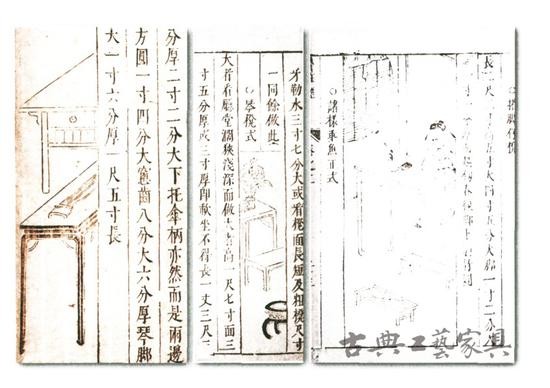 ○搭脚仔櫈
○諸樣垂魚正式
牙勒水三寸七分大或看櫈面長短及粗櫈尺寸
一同餘倣此
○琴櫈式
大者看廳堂濶狹淺深而做大者高一尺七寸面三
寸五分厚或三寸厚即軟坐不得長一丈三尺三
分厚二寸二分大下托傘柄亦然而是兩邊
方圓一寸四分大窻齒八分大六分厚琴脚
大一寸六分厚一尺五寸長
古典工藝家具